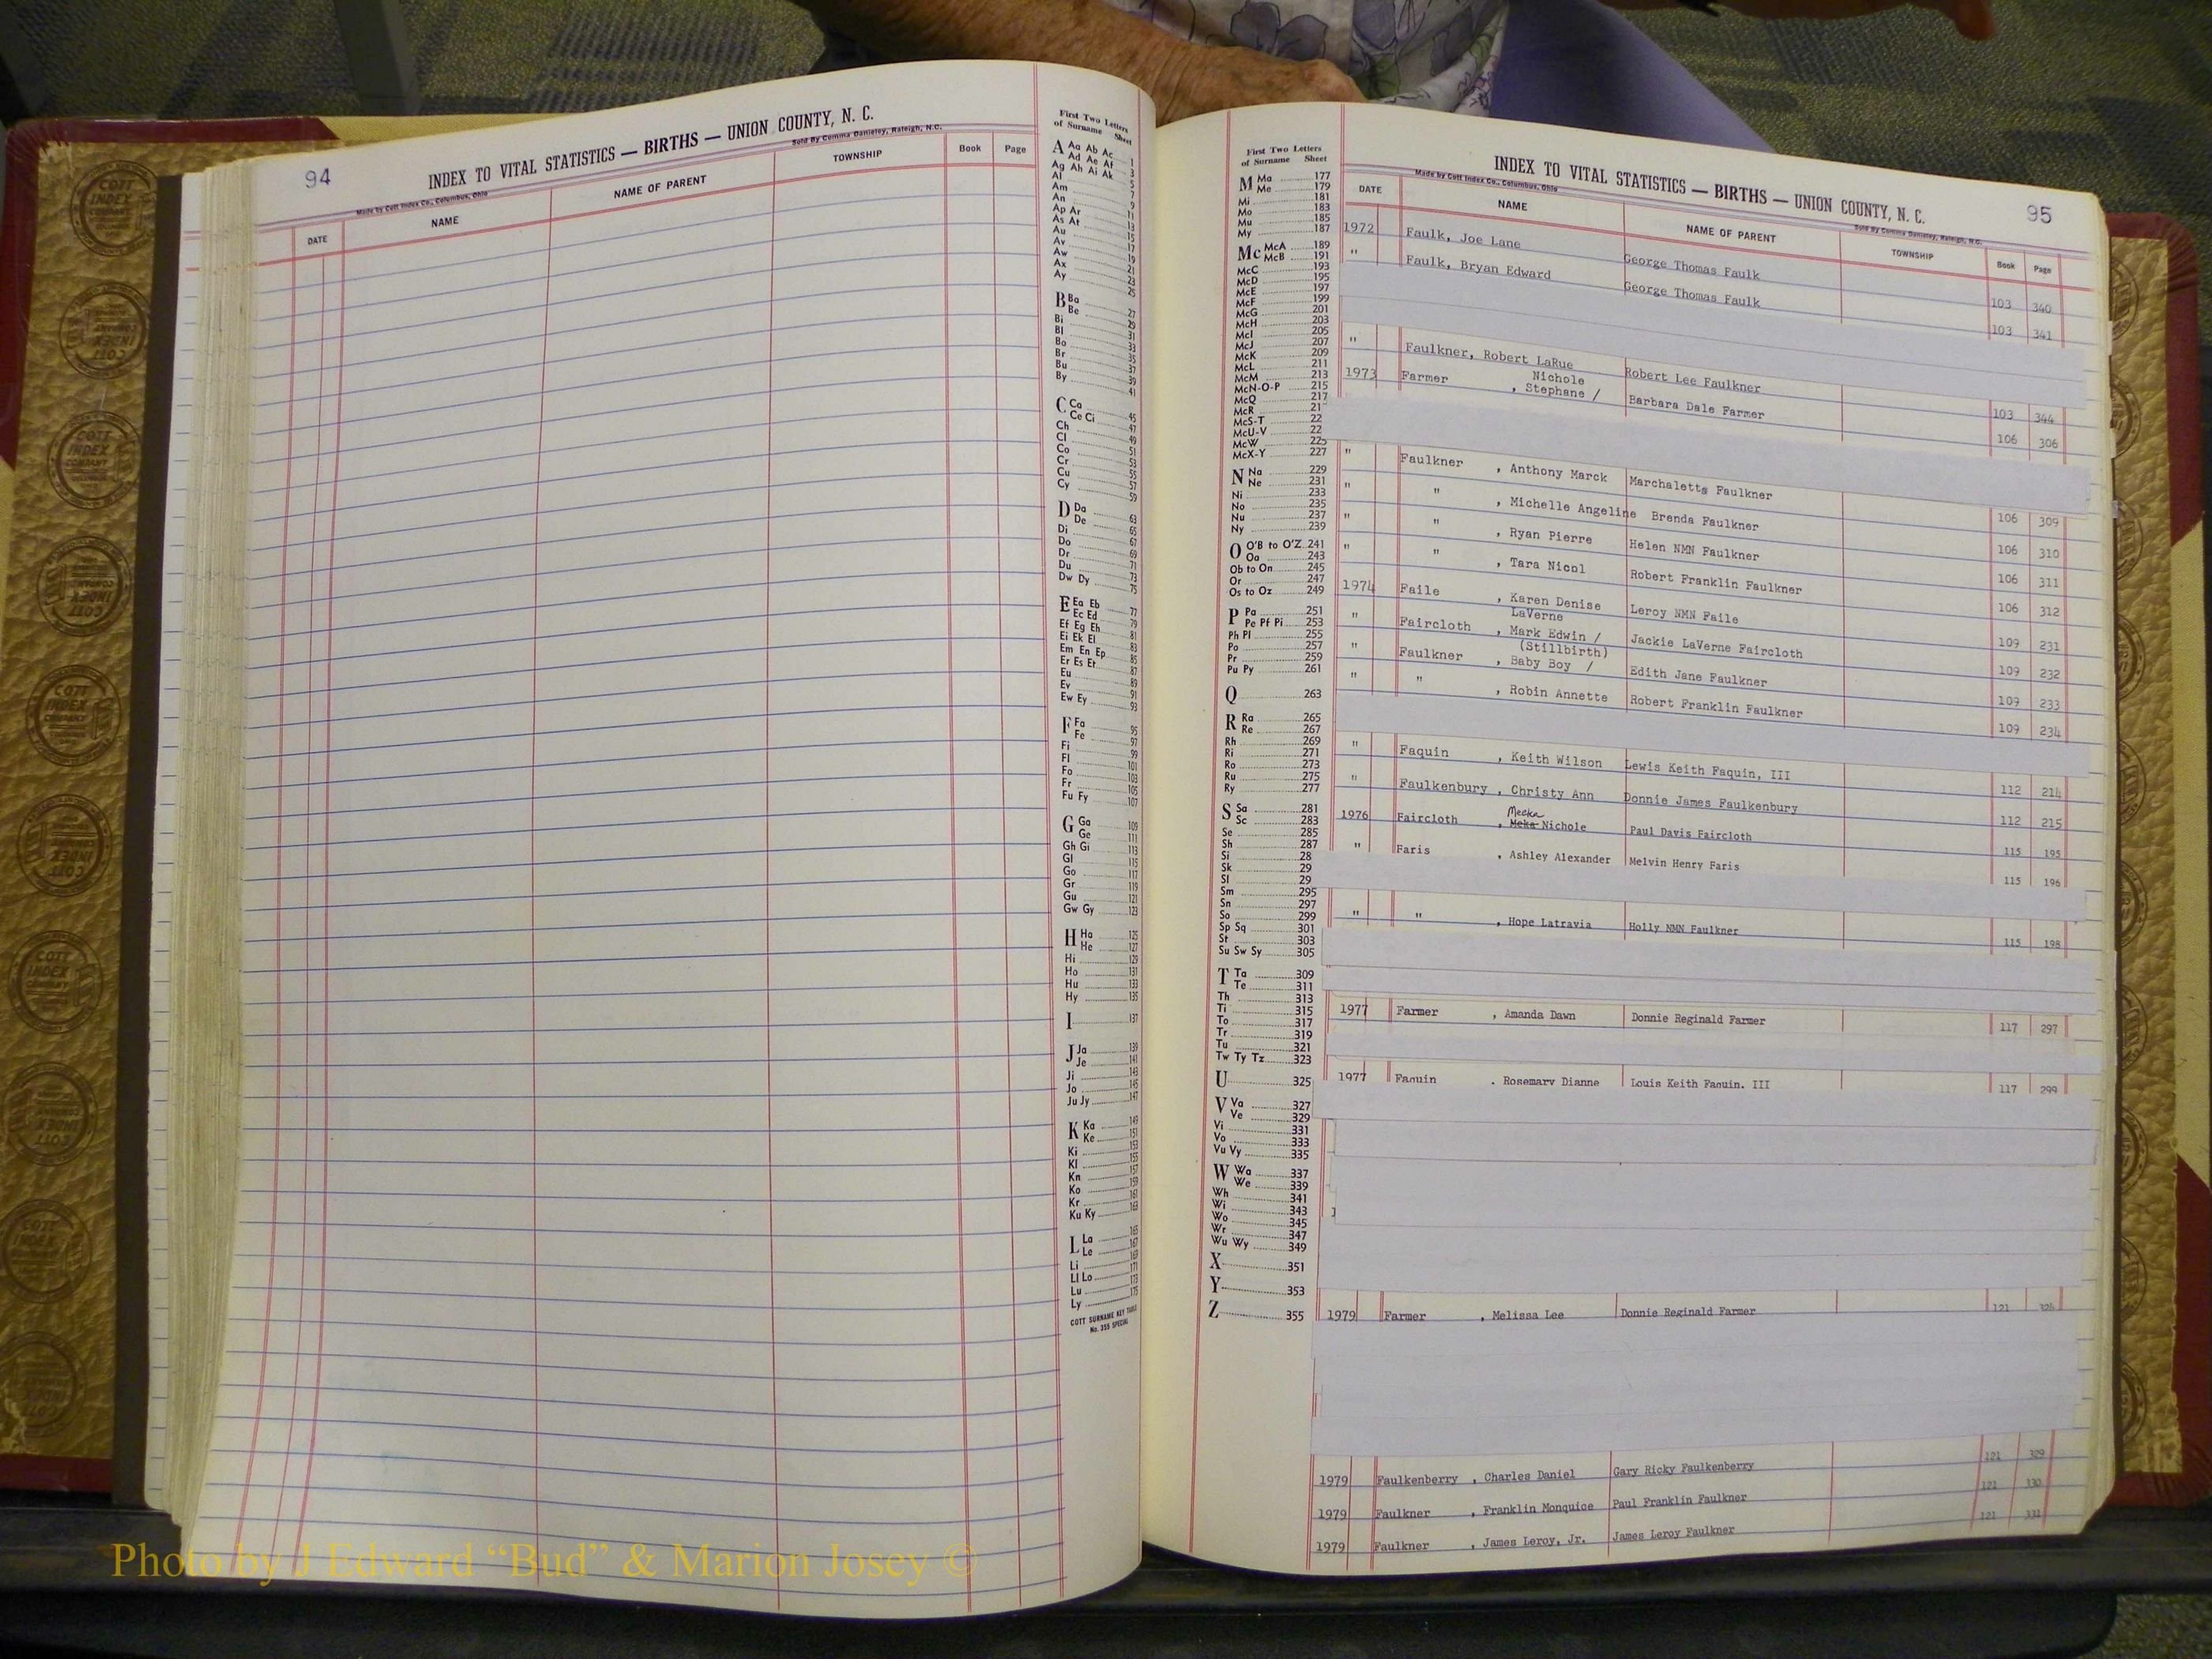 94
INDEX TO VITAL STATISTICS — BIRTHS — UNION COUNTY, N. C.
Made by Cott Index Co., Columbus, Ohio
Sold By Comma Danieley, Raleigh, N.C.
DATE NAME NAME OF PARENT TOWNSHIP Book Page
First Two Letters
of Surname Sheet
A Aa Ab Ac 1
Ad Ae Af 3
Ag Ah Ai Ak 5
Al 7
Am 9
An 11
Ap Ar 13
As At 15
Au 17
Av 19
Aw 21
Ax 23
Ay 25
B Ba 27
Be 29
Bi 31
Bl 33
Bo 35
Br 37
Bu 39
By 41
C Ca 45
Ce Ci 47
Ch 49
Cl 51
Co 53
Cr 55
Cu 57
Cy 59
D Da 63
De 65
Di 67
Do 69
Dr 71
Du 73
Dw Dy 75
E Ea Eb 77
Ec Ed 79
Ef Eg Eh 81
Ei Ek El 83
Em En Ep 85
Er Es Et 87
Eu 89
Ev 91
Ew Ey 93
F Fa 95
Fe 97
Fi 99
Fl 101
Fo 103
Fr 105
Fu Fy 107
G Ga 109
Ge 111
Gh Gi 113
Gl 115
Go 117
Gr 119
Gu 121
Gw Gy 123
H Ha 125
He 127
Hi 129
Ho 131
Hu 133
Hy 135
I 137
J Ja 139
Je 141
Ji 143
Jo 145
Ju Jy 147
K Ka 149
Ke 151
Ki 153
Kl 155
Kn 157
Ko 159
Kr 161
Ku Ky 163
L La 165
Le 167
Li 169
Ll Lo 171
Lu 173
Ly 175
COTT SURNAME KEY TABLE
No. 355 SPECIAL
First Two Letters
of Surname Sheet
M Ma 177
Me 179
Mi 181
Mo 183
Mu 185
My 187
Mc McA 189
McB 191
McC 193
McD 195
McE 197
McF 199
McG 201
McH 203
McI 205
McJ 207
McK 209
McL 211
McM 213
McN-O-P 215
McQ 217
McR 21
McS-T 22
McU-V 22
McW 225
McX-Y 227
N Na 229
Ne 231
Ni 233
No 235
Nu 237
Ny 239
O O'B to O'Z 241
Oa 243
Ob to On 245
Or 247
Os to Oz 249
P Pa 251
Pe Pf Pi 253
Ph Pl 255
Po 257
Pr 259
Pu Py 261
Q 263
R Ra 265
Re 267
Rh 269
Ri 271
Ro 273
Ru 275
Ry 277
S Sa 281
Sc 283
Se 285
Sh 287
Si 28
Sk 29
Sl 29
Sm 295
Sn 297
So 299
Sp Sq 301
St 303
Su Sw Sy 305
T Ta 309
Te 311
Th 313
Ti 315
To 317
Tr 319
Tu 321
Tw Ty Tz 323
U 325
V Va 327
Ve 329
Vi 331
Vo 333
Vu Vy 335
W Wa 337
We 339
Wh 341
Wi 343
Wo 345
Wr 347
Wu Wy 349
X 351
Y 353
Z 355
INDEX TO VITAL STATISTICS — BIRTHS — UNION COUNTY, N. C.
95
Made by Cott Index Co., Columbus, Ohio
Sold By Comma Danieley, Raleigh, N.C.
DATE NAME NAME OF PARENT TOWNSHIP Book Page
1972 Faulk, Joe Lane George Thomas Faulk 103 340
" Faulk, Bryan Edward George Thomas Faulk 103 341
" Faulkner, Robert LaRue Robert Lee Faulkner 103 344
Nichole
1973 Farmer , Stephane / Barbara Dale Farmer 106 306
" Faulkner , Anthony Marck Marchaletts Faulkner 106 309
" " , Michelle Angeline Brenda Faulkner 106 310
" " , Ryan Pierre Helen NMN Faulkner 106 311
" " , Tara Nicol Robert Franklin Faulkner 106 312
1974 Faile , Karen Denise Leroy NMN Faile 109 231
LaVerne
" Faircloth , Mark Edwin / Jackie LaVerne Faircloth 109 232
(Stillbirth)
" Faulkner , Baby Boy / Edith Jane Faulkner 109 233
" " , Robin Annette Robert Franklin Faulkner 109 234
" Faquin , Keith Wilson Lewis Keith Faquin, III 112 214
" Faulkenbury , Christy Ann Donnie James Faulkenbury 112 215
Meeka
1976 Faircloth , Meka Nichole Paul Davis Faircloth 115 195
" Faris , Ashley Alexander Melvin Henry Faris 115 196
" " , Hope Latravia Holly NMN Faulkner 115 198
1977 Farmer , Amanda Dawn Donnie Reginald Farmer 117 297
1977 Faquin , Rosemary Dianne Louis Keith Faquin, III 117 299
1979 Farmer , Melissa Lee Donnie Reginald Farmer 121 324
121 329
1979 Faulkenberry , Charles Daniel Gary Ricky Faulkenberry 121 130
1979 Faulkner , Franklin Monquice Paul Franklin Faulkner 121 331
1979 Faulkner , James Leroy, Jr. James Leroy Faulkner
Photo by J Edward “Bud” & Marion Josey ©